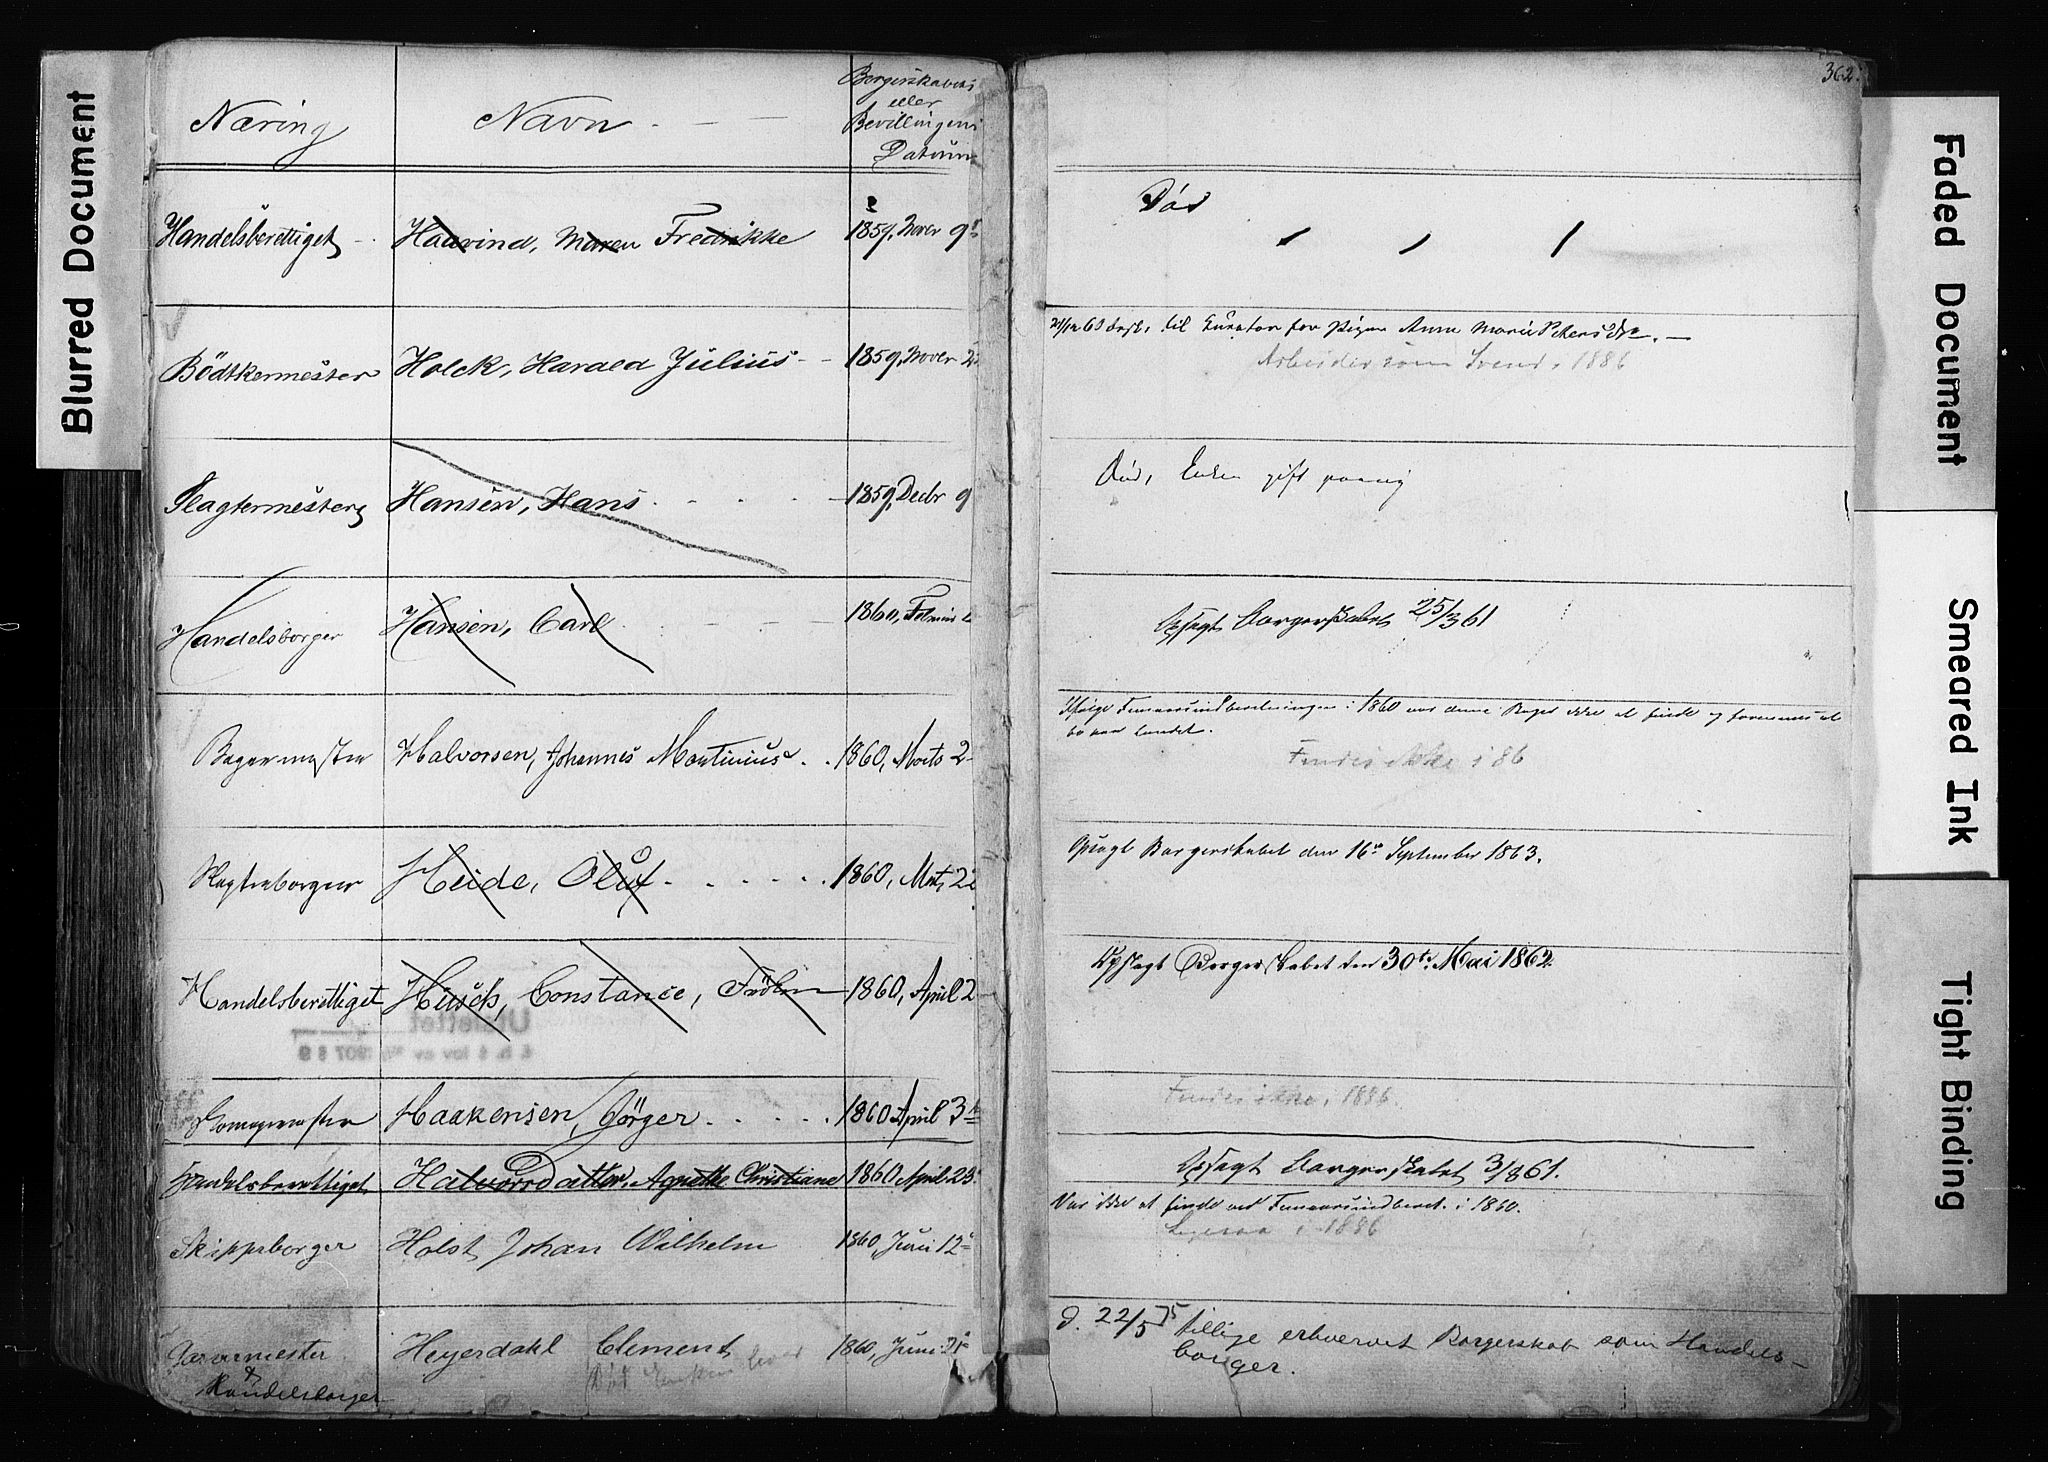 Blurred Document
Næring
Navn
Borgerskabets
eller
Bevillingens
Datum
Handelsberettiget
Haavind, Maren Fredrikke
1859, Novbr 9
Bödtkermester
Holck, Harald Julius
1859, Novbr
Slagtermester
Hansen, Hans
1859, Decbr 9
Handelsborger
Hansen, Carl
1860,
Bagermester
Halvorsen, Johannes Martinius
1860, Marts 2
Heide, Oluf
1860, Mrts 22
Handelsberettiget
Hysch, Constance,
1860, April 2
Haakensen, Jörger
1860 April 3
Handelsberettiget
Halvorsdatter, Agnethe Christiane
1860 April 23
Skippsborger
Holst Johan Wilhelm
1860, Juni 12
Garvermester
& Handelsborger
Heyerdahl Clement
Död Enken lever
1860, Juni 21
362.
Död
til Curator for Pigen Anne Marie
Arbeider som Svend, 1886
Död, Enken gift paany
Opsagt Borgerskabet 25/3 61
Ifölge i 1860 var denne Bager ikke at finde og formenes at
bo paa Landet.
Findes ikke i 86
Opsagt Borgerskabet den 16de September 1863.
Opsagt Borgerskabet den 30te Mai 1862.
Findes ikke i 1886.
Opsagt Borgerskabet 3/8 61.
Var ikke at finde ved i 1860.
Ligesaa i 1886
d. 22/5 75 tillige erhvervet Borgerskab som Handels-
borger.
Faded Document
Smeared Ink
Tight Binding